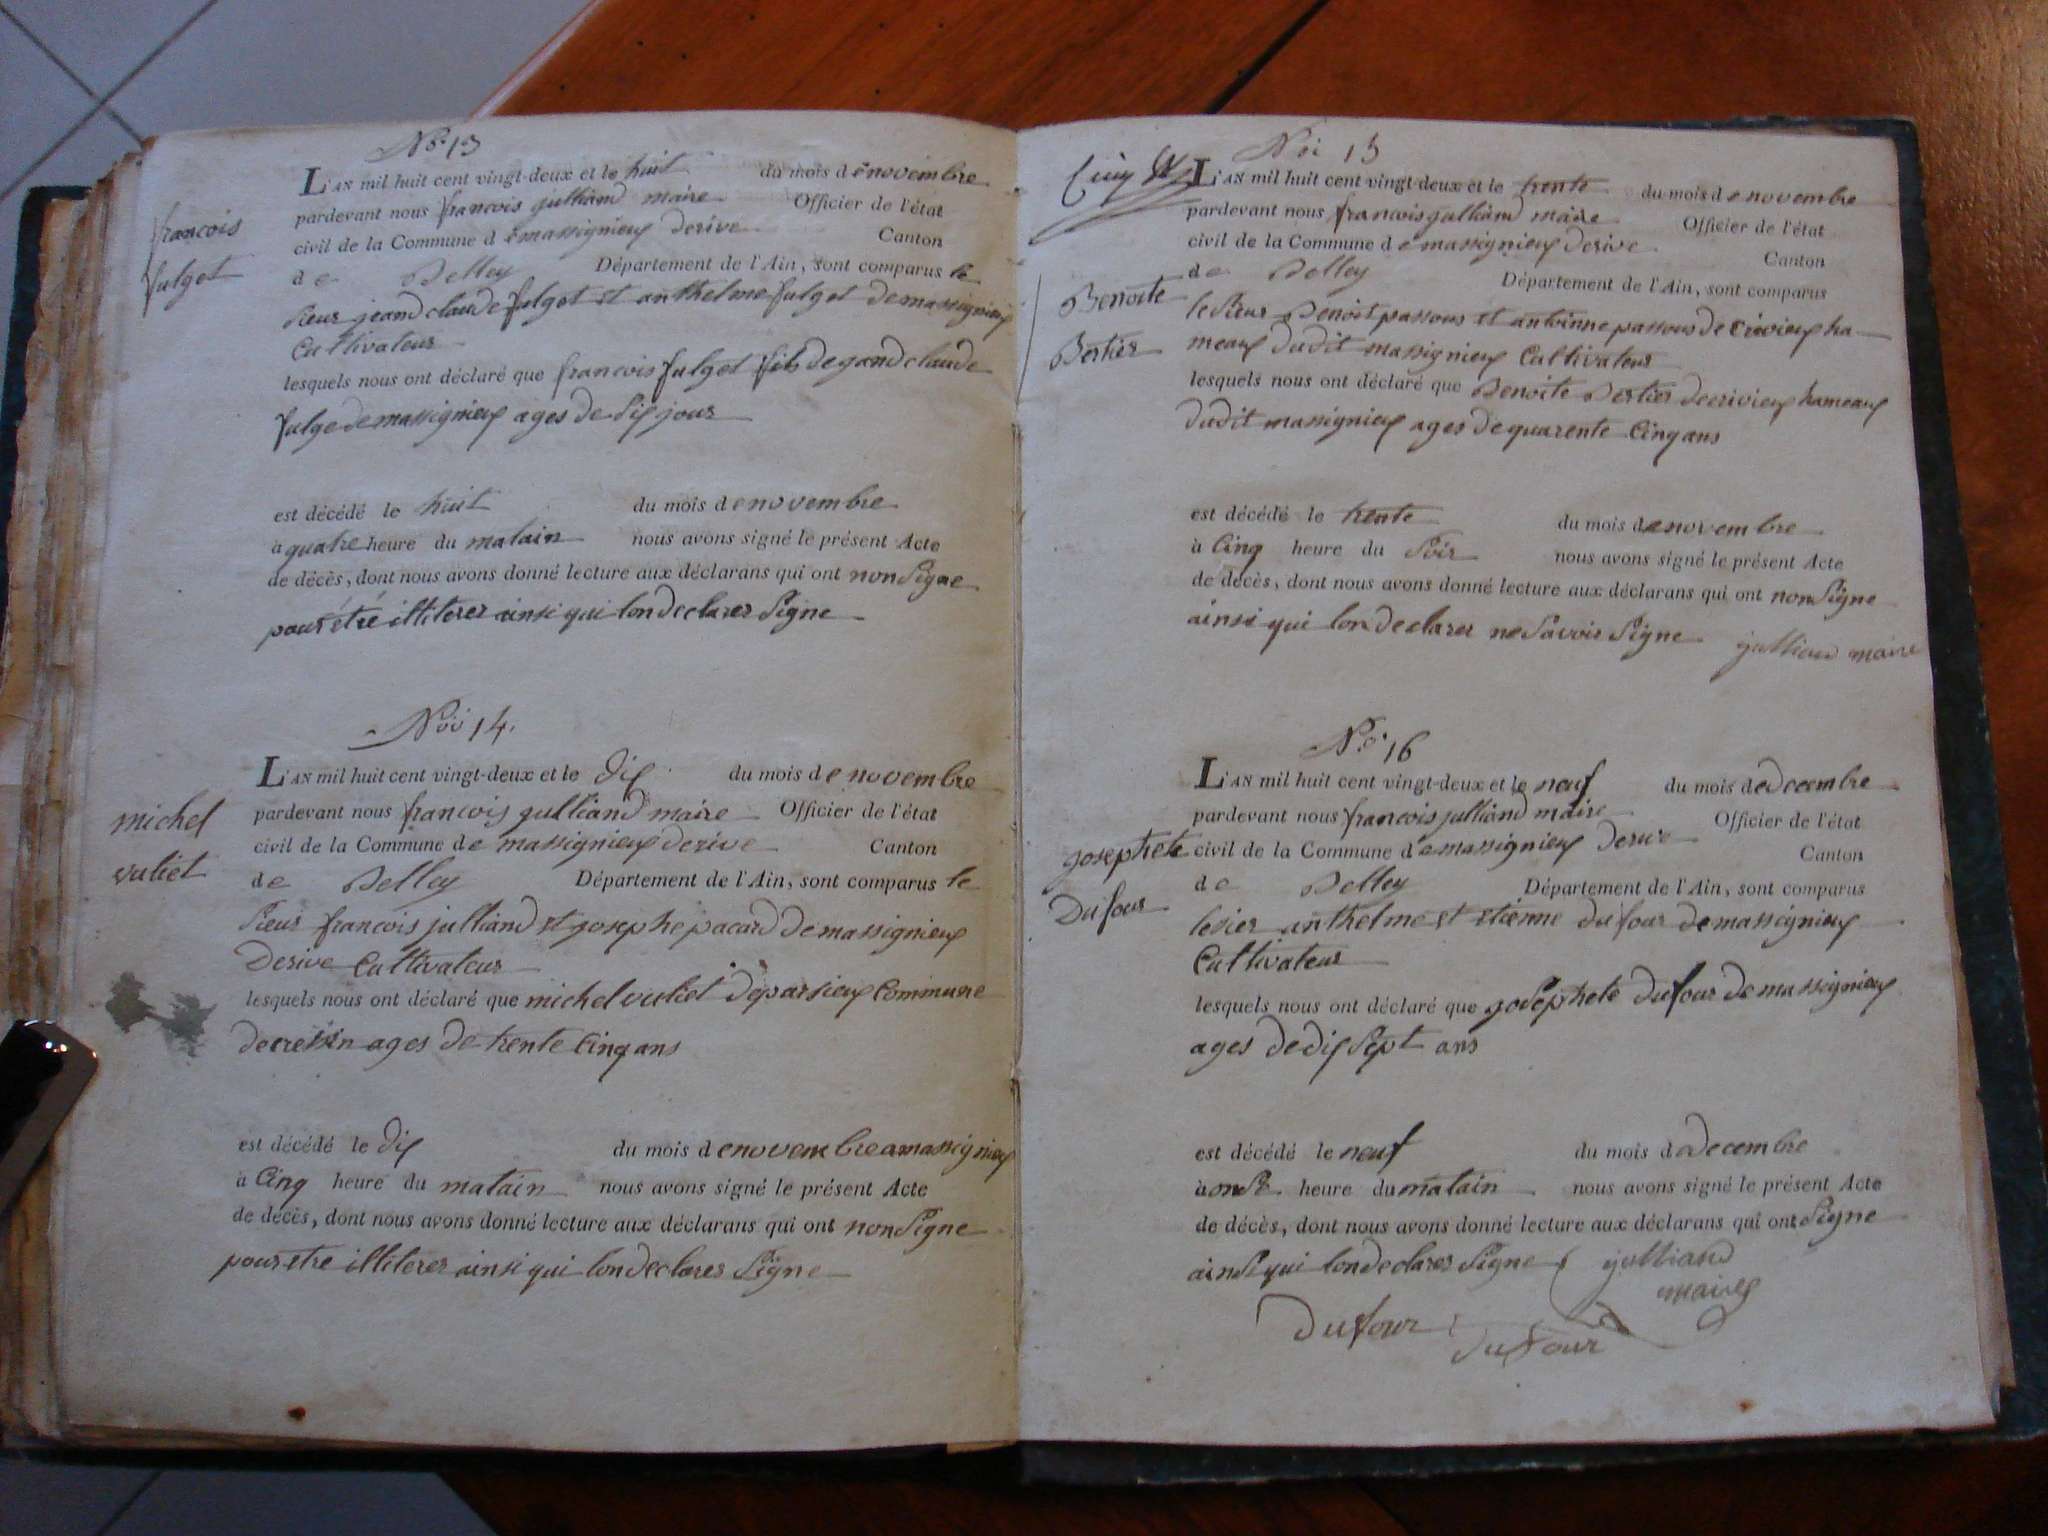 No. 13
L'AN mil huit cent vingt-deux et le huit du mois de novembre
pardevant nous francois julliand maire Officier de l'état
civil de la Commune de massignieux derive Canton
de Belley Département de l'Ain, sont comparus le
francois
fulget
Sieur jeandclaude fulget et anthelme fulget demassignieux
Cultivateur
lesquels nous ont déclaré que francois fulget fils degandclaude
fulge demassignieux ages de Six jour
est décédé le huit du mois de novembre
à quatre heure du matain nous avons signé le présent Acte
de décès, dont nous avons donné lecture aux déclarans qui ont non Signe
pour étre illiterer ainsi qui londeclarer Signe
No 14.
L'AN mil huit cent vingt-deux et le dix du mois de novembre
pardevant nous francois julliand maire Officier de l'état
civil de la Commune de massignieux derive Canton
de Belley Département de l'Ain, sont comparus le
michel
vuliet
Sieur francois julliand et josephe pacard de massignieux
Derive Cultivateur
lesquels nous ont déclaré que michel vuliet deparsieux Commune
de ages de trente Cinq ans
est décédé le dix du mois de novembre amassignieux
à Cinq heure du matain nous avons signé le présent Acte
de décès, dont nous avons donné lecture aux déclarans qui ont non Signe
pour etre illiterer ainsi qui londeclarer Signe
No 15
Cinq
L'AN mil huit cent vingt-deux et le trente du mois de novembre
pardevant nous francois julliand maire Officier de l'état
civil de la Commune de massignieux derive Canton
de Belley Département de l'Ain, sont comparus
Benoite
Bertier
le Sieur Benoit passous et antoinne passous de crivieux ha-
meaux dudit massignieux Cultivateur
lesquels nous ont déclaré que Benoite Bertier decrivieux hameaux
dudit massignieux ages de quarente Cinq ans
est décédé le trente du mois de novembre
à Cinq heure du Soir nous avons signé le présent Acte
de décès, dont nous avons donné lecture aux déclarans qui ont non Signe
ainsi qui londeclarer ne Savoir Signe julliand maire
No. 16
L'AN mil huit cent vingt-deux et le neuf du mois dedecembre
pardevant nous francois julliand maire Officier de l'état
civil de la Commune de massignieux derive Canton
de Belley Département de l'Ain, sont comparus
josephete
Dufour
lesier anthelme et etienne dufour demassignieux
Cultivateur
lesquels nous ont déclaré que josephete dufour de massignieux
ages de dix Sept ans
est décédé le neuf du mois dedecembre
à onse heure du matain nous avons signé le présent Acte
de décès, dont nous avons donné lecture aux déclarans qui ont Signe
ainsi qui londeclarer Signe julliand
maire
Dufour
dufour